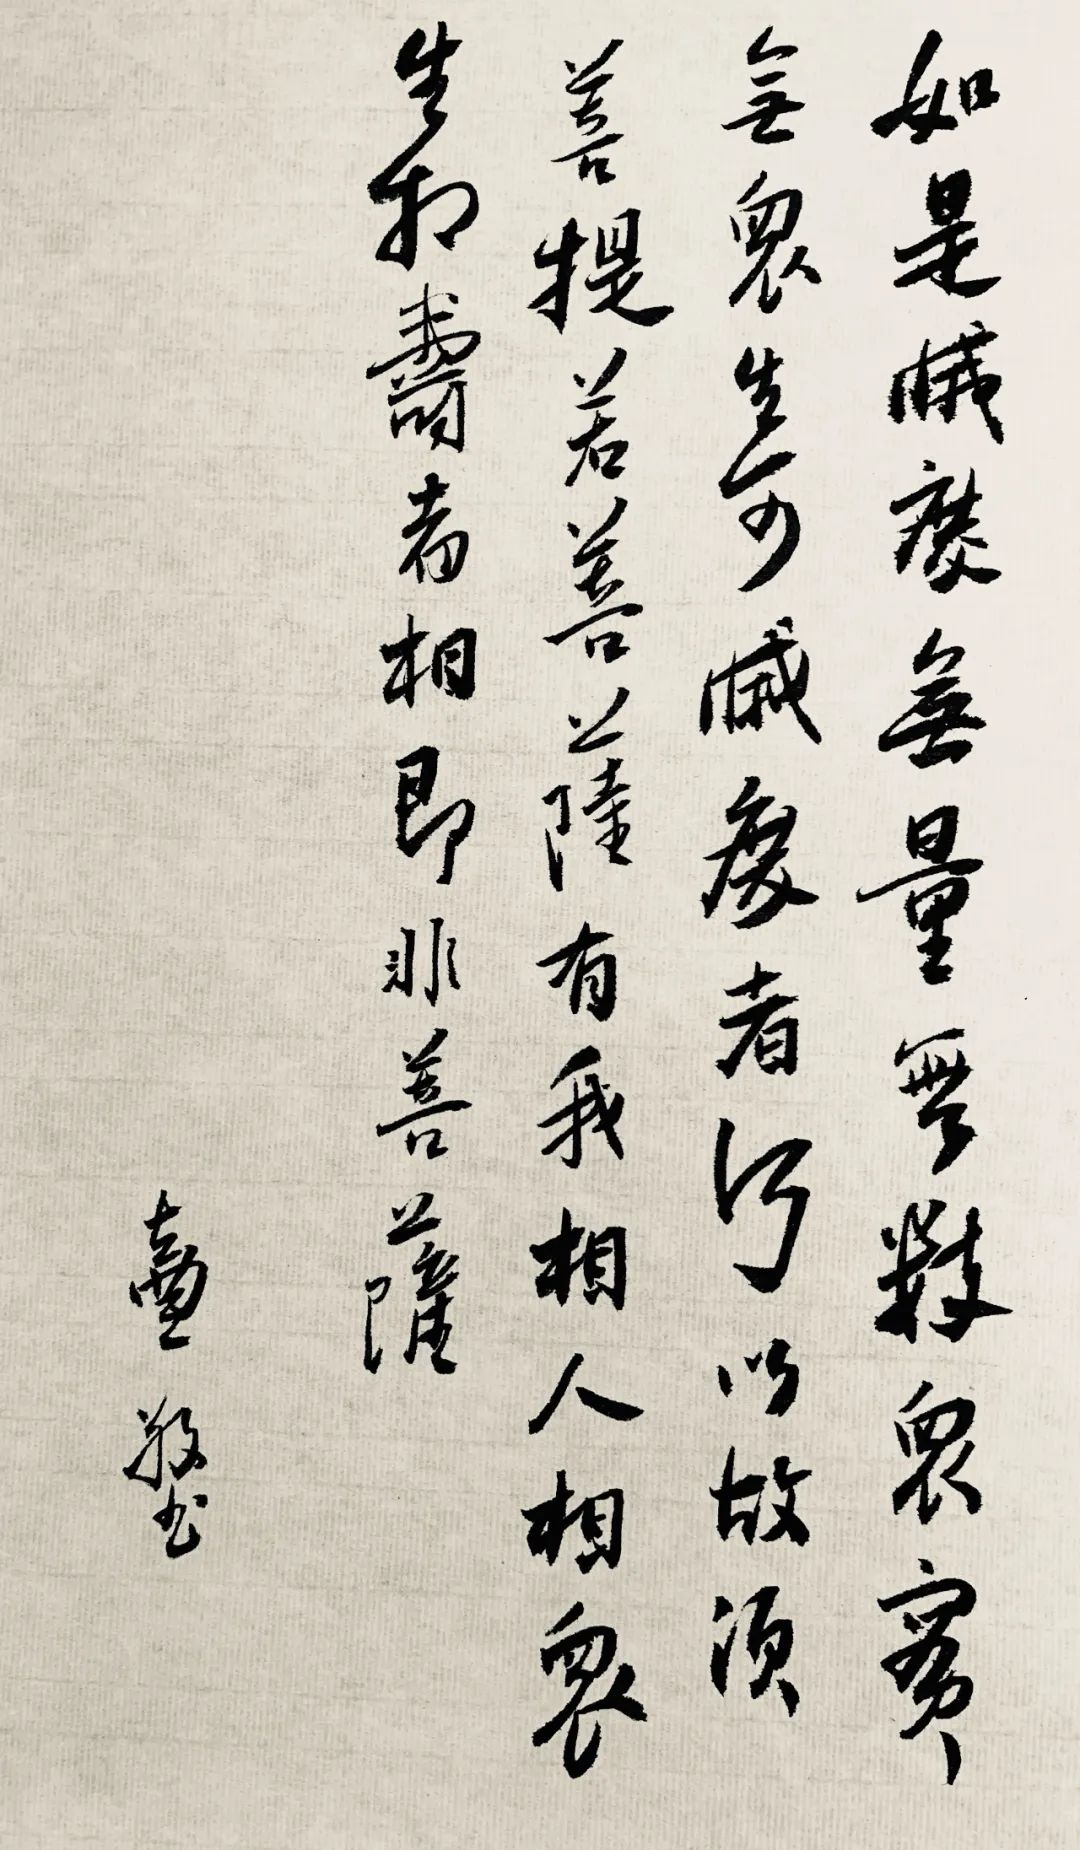 如是滅度無量無數衆實
無衆生滅度者何以故須
菩提若菩薩有我相人相衆
生相壽者相即非菩薩
敬书